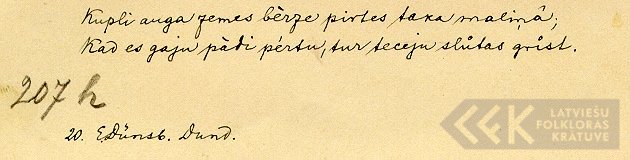 Kupli auga zemes bērze pirtes taka maliņâ;
Kad es gaju pādi pērtu, tur teceju slůtas grìst.
207 h
20. E. Dünsb. Dund.
LATVIEŠU
FOLKLORAS
KRĀTUVE